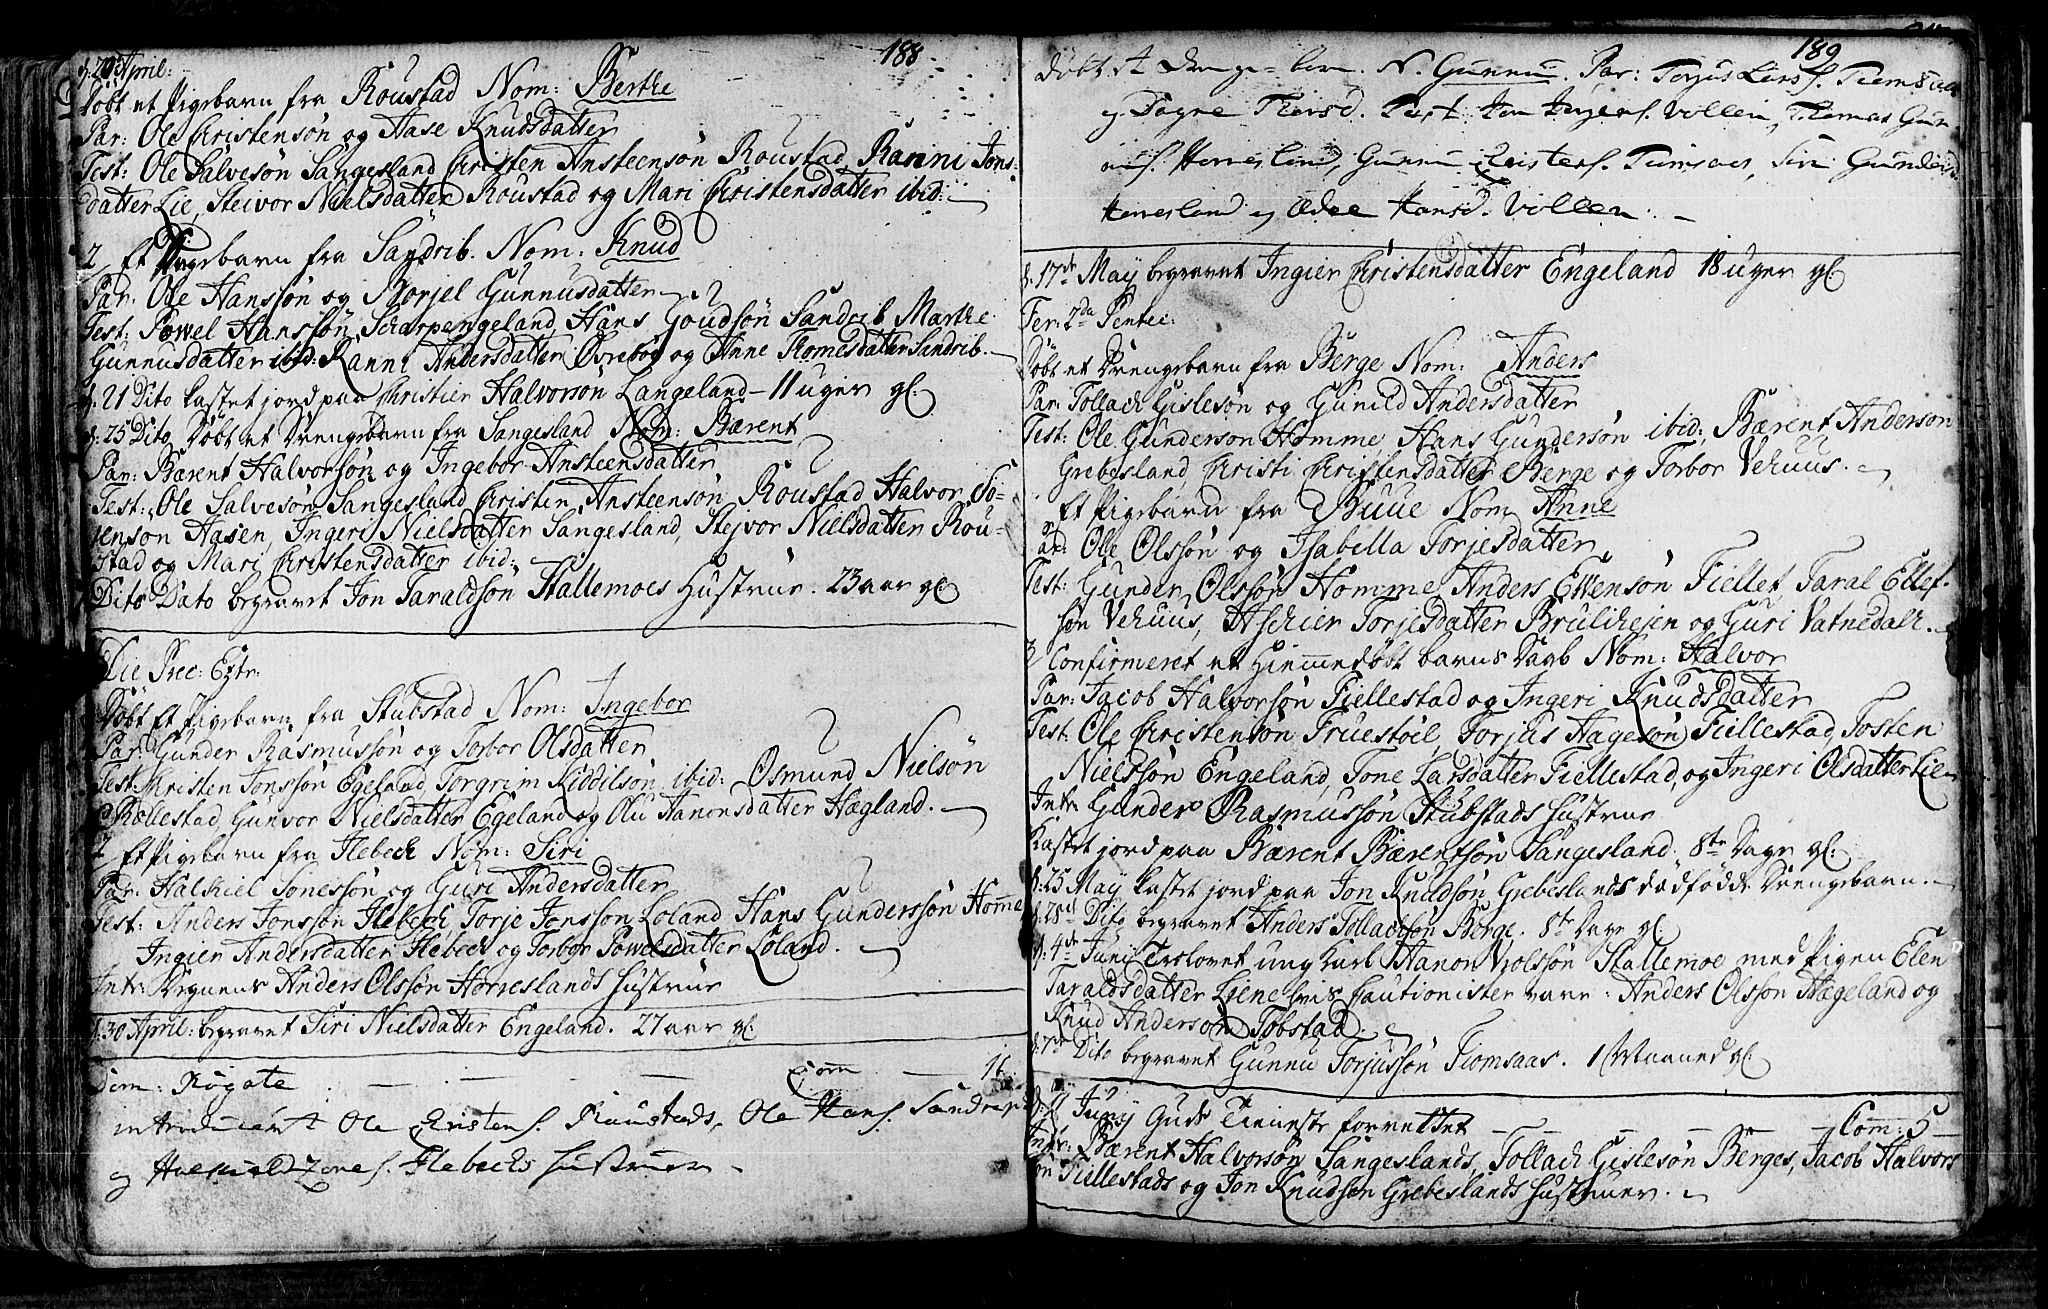 188
d: 20 April:
Döbt et Pigebarn fra Roustad Nom: Berthe
Par: Ole Christensøn og Aase Knudsdatter
Test: Ole Salvesøn Sangesland Christen Ansteensøn Roustad, Ranni Jons-
datter Lie, Steivor Nielsdatter Roustad og Mari Christensdatter ibid:
2 Et Pigebarn fra Sandrib. Nom: Knud
Par: Ole Hanssøn og Borjel Gunnusdatter
Test: Powel Hanssøn Scharpengeland, Hans Goudsøn Sandrib Marthe
Gunnusdatter ibid: Ranni Andersdatter Øvrebøe og Anne Thomesdatter Sandrib.
d: 21 Dito kastet jord paa Christier Halvorsøn Langeland 11 uger gl:
d: 25 Dito Döbt et Drengebarn fra Sangesland Nom: Bærent
Par: Bærent Halvorsøn og Ingebor Ansteensdatter
Test: Ole Salvesøn Sangesland Christen Ansteensøn Roustad Halvor Sö-
renson Aasen, Ingeri Nielsdatter Sangesland, Stejvor Nielsdatter Rou-
stad og Mari Christensdatter ibid:
Dito Dato begravet Jon Taraldsøn Stallemoes Hustrue. 23 aar gl:
Die Prec: Extr:
Döbt Et Pigebarn fra Stubstad Nom: Ingebor
Par: Gunder Rasmussøn og Torbor Olsdatter
Test: Christen Jonssøn Egeland, Torgrim Kiddilsøn ibid: Osmund Nielsøn
Røllestad Gunvor Nielsdatter Egeland og Olu Aanonsdatter Hægland.
2 Et Pigebarn fra Flebech Nom: Siri
Par: Halkiel Sonessøn og Guri Andersdatter
Test: Anders Jonssøn Flebech, Torje Jonssøn Loland Hans Gunderssøn Homme
Ingier Andersdatter Flebech og Torbor Powelsdatter Loland.
Intr: Degnens Anders Olssøn Horreslands Hustrue
d: 30 April: begravet Siri Nielsdatter Engeland. 27 aar gl:
Dom: Rogate com 16
introduceret Ole Christens. Roustads, Ole Hans. Sandrips
og Halkield Zones. Flebechs Hustruer
189
döbt et Drenge-barn. N. Gunnu. Par: Torjus Lars. Tiomsaas
og Tagne Thorsd. Test. Vollen, Thomas Gun
nus. Horresland, Gunnu Christens. Tiomsaas, Siri
Horresland og Hansd. Vollen.
d: 17de Maÿ begravet Ingier Christensdatter Engeland 18 uger gl:
Fer: 2da Pentec:
Döbt et Drengebarn fra Berge Nom: Anders
Par: Tollach Gislesøn og Gunild Andersdatter
Test: Ole Gunderson Homme, Hans Gundersøn ibid: Bærent Anderson
Grebesland, Christi Christensdatter Berge og Torbor Vehuus.
Et Pigebarn fra Buue Nom Anne
Par: Ole Olssøn og Isabella Torjesdatter
Test: Gunder Olssøn Homme, Anders Evensøn Fiellet, Taral Ellef-
søn Vehuus, Aschier Torjesdatter Brulihejen og Guri Vatnedalr.
2 Confirmeret et Hiemmedöbt barns Daab Nom: Halvor
Par: Jacob Halvorsøn Fiellestad og Ingeri Knudsdatter
Test Ole Christensøn Fruestøil, Torjus Aagesøn Fiellestad, Tosten
Nielssøn Engeland, Tone Larsdatter Fiellestad, og Ingeri Olsdatter Lie
Intr: Gunder Rasmussøn Stubstads Hustrue
Kastet jord paa Bærent Bærentsøn Sangesland. 8te Dage gl:
d: 25 Maÿ kastet jord paa Jon Knudsøn Grebeslands dødfødde Drengebarn.
d: 28 Dito begravet Anders Tollachsøn Berge. 8te Dage gl:
d: 4de Junij Trolovet ung Karl Aanon Wolssøn Stallemoe med Pigen Elen
Taraldsdatter Liene hvis Cautionister vare: Anders Olsson Hægeland og
Knud Andersen Tobstad.
d: 7de Dito begravet Gunnu Torjussøn Tiomsaas. 1 Maaned gl:
d: 11 Junij Guds Tieneste forrettet Com: 5
Intr: Bærent Halvorsøn Sangeslands, Tollach Gislesøn Berges, Jacob Halvors
søn Fiellestads og Jon Knudsen Grebeslands Hustruer.